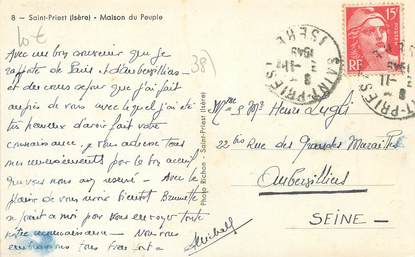 8 – Saint-Priest (Isère) – Maison du Peuple
10 €
38)
Avec un bon souvenir que je
rapporte de Paris et d'Aubervilliers
et des courses que j'ai fait
auprès de vous avec lequel j'ai été
très heureux d'avoir fait votre
connaissance, je vous adresse tous
mes remerciements par le bon accueil
que vous nous avez réservé – Avec le
plaisir de vous avoir bientôt Brunette
se joint à moi pour vous envoyer toute
notre reconnaissance – Nous vous
embrassons tous
Photo Richon - Saint-Priest (Isère)
SAINT-PRIEST
ISERE
1949
15F
RF
Mme & Mr Henri
22 bis Rue des Grandes Murailles
Aubervilliers
SEINE –